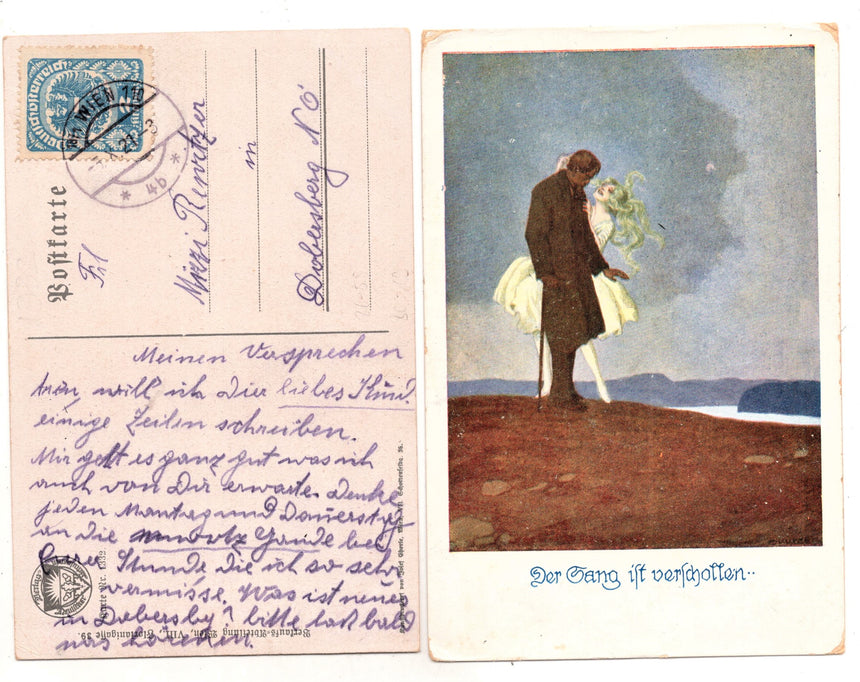 Deutschösterreich
WIEN 110
* 4b *
Postkarte
Frl
Mizzi Rewitzer
in
Dobersberg N Ö
Meinen Versprechen
will ich Dir liebes Kind
einige Zeilen schreiben.
Mir geht es ganz gut was ich
auch von Dir erwarte. Denke
jeden Montag und Donerstag
an die
Stunde die ich so sehr
vermisse. Was ist neues
in Dobersbg? bitte laß bald
was hören.
Karte Nr. 1332
Verkaufs-Abteilung Wien, VIII., Florianigasse 39.
Der Sang ist verschollen..